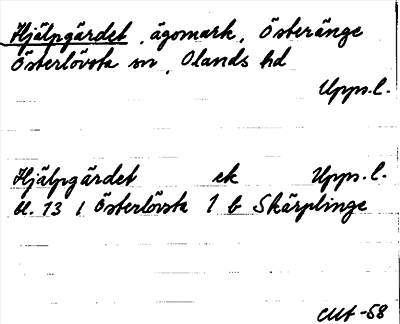 Hjälpgärdet, ägomark, Österänge
Österlövsta sn, Olands hd
Upps. l.
Hjälpgärdet ek Upps. l.
bl. 13 1 Österlövsta 1 b Skärplinge
-58